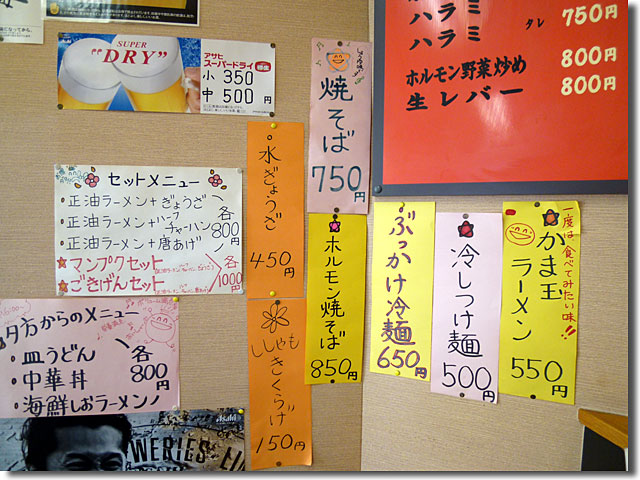 SUPER
"DRY"
アサヒ
スーパードライ
小 350
中 500円
焼そば
750円
ハラミ
ハラミ タレ 750円
ホルモン野菜炒め 800円
生レバー 800円
セットメニュー
・正油ラーメン+ぎょうざ
・正油ラーメン+ハーフチャーハン
・正油ラーメン+唐あげ
各800円
・マンプクセット
・ごきげんセット
各1000円
水ぎょうざ
450円
ホルモン焼そば
850円
ぶっかけ冷麺
650円
冷しつけ麺
500円
一度は食べてみたい味!!
かま玉
ラーメン
550円
夕方からのメニュー
・皿うどん
・中華丼
・海鮮しおラーメン
各800円
ししゃも
きくらげ
150円
Asahi
WERIES LI